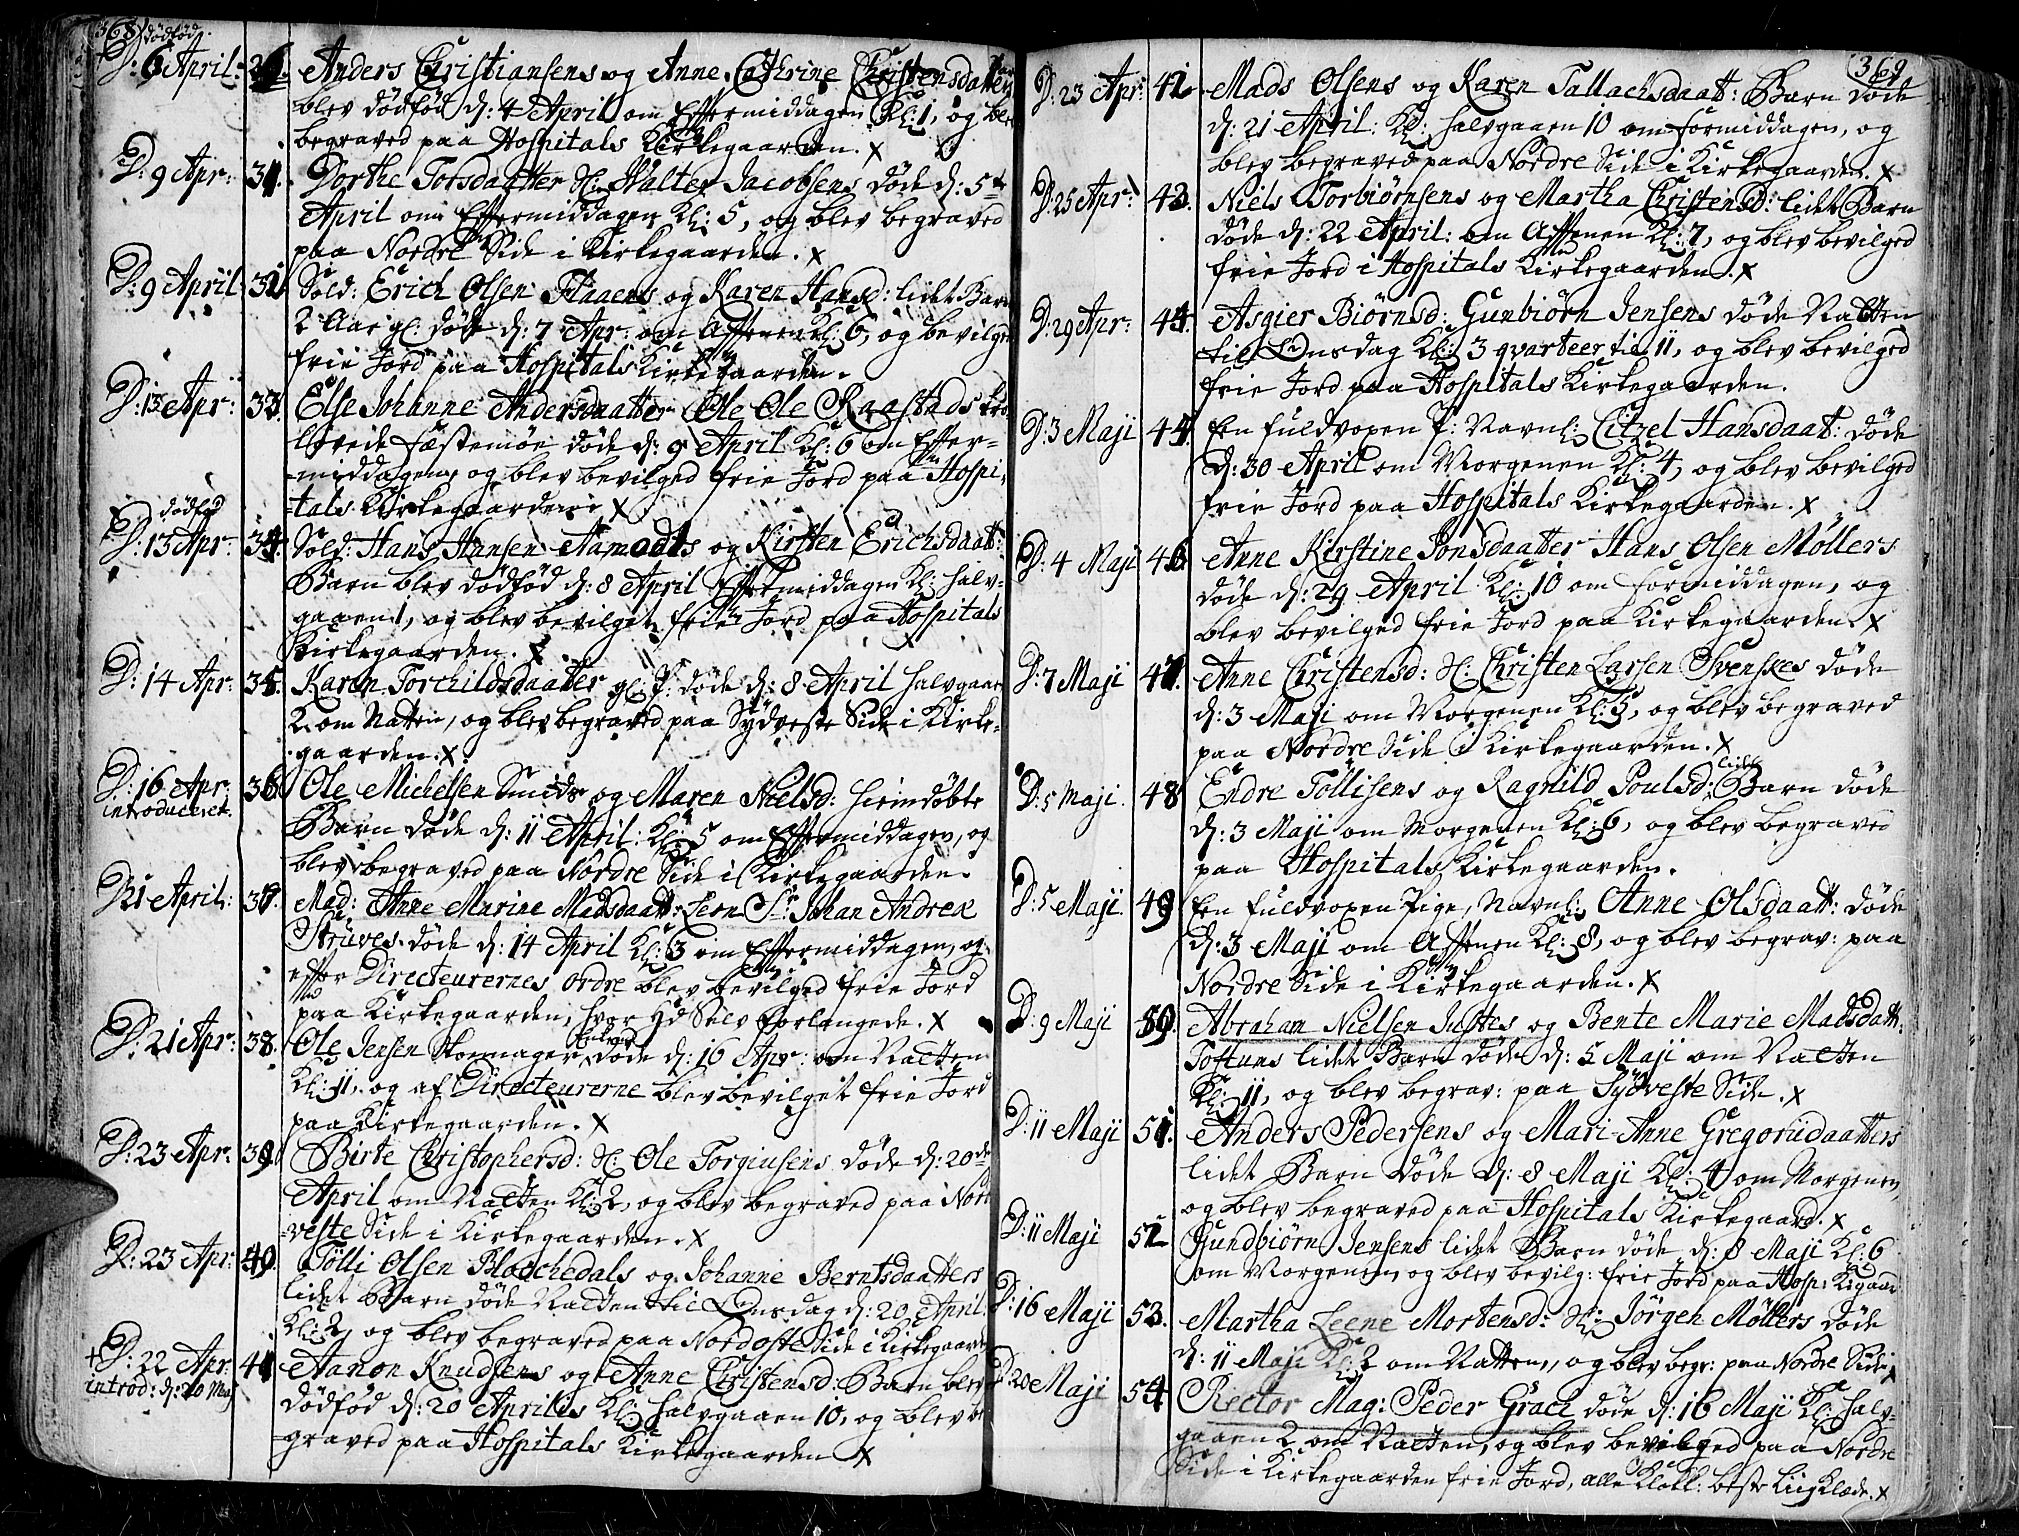 368
dødfød.
D: 6 April: 26. Anders Christiansens og Anne Cathrine Christensdatters
blev dødfød d: 4 April om Eftermiddagen Kl: 1, og blev
begraved paa Hospitals Kirkegaarden. X
D: 9 Apr: 31. Dorthe Totsdaatter Sl: Walter Jacobsens døde d: 5te
April om Eftermiddagen Kl: 5, og blev begraved
paa Nordre Side i Kirkegaarden. X
D: 9 April: 32. Sold: Erich Olsen Haaens og Karen Hansd: lidet Barn
2 Aar gl: døde d: 7 Apr: om Aftenen Kl: 6, og bevilget
frie Jord paa Hospitals Kirkegaarden.
D: 13 Apr: 33. Else Johanne Andersdaatter Ole Ole Raastads tro-
lovede Fæstemøe døde d: 9 April Kl: 6 om Efter-
middagen, og blev bevilged frie Jord paa Hospi-
tals Kirkegaarden X
dødfød
D: 13 Apr: 34. Sold: Hans Hansen Aamodts og Kirsten Erichsdaat:
Barn blev dødfød d: 8 April Eftermiddagen Kl: halv-
gaaen 1, og blev bevilget frie Jord paa Hospitals
Kirkegaarden. X
D: 14 Apr: 35. Karen Torchildsdaatter gl: P: døde d: 8 April halvgaaen
2 om Natten, og blev begraved paa Sydveste Side i Kirke-
gaarden. X
D: 16 Apr: 36 Ole Michelsen Smids og Maren Nielsd: hiemdøbte
introduceret.
Barn døde d: 11 April: Kl: 5 om Eftermiddagen, og
blev begraved paa Nordre Side i Kirkegaarden.
D: 21 April: 37. Mad: Anne Marine Madsdaat: Sr: Johan Andrea
Strüves døde d: 14 April Kl: 3 om Eftermiddagen, og
efter Directeurernes Ordre blev bevilged frie Jord
paa Kirkegaarden, hvor Hd Selv forlangede. X
D: 21 Apr: 38. Ole Jensen Skomager døde d: 16 Apr: om Natten
Kl: 11, og af Directeurerne blev bevilget frie Jord
paa Kirkegaarden. X
D: 23 Apr: 39. Birte Christophersd: Sl: Ole Torgiusens døde d: 20de
April om Natten Kl: 2, og blev begraved paa Nord
veste Side i Kirkegaarden. X
D: 23 Apr: 40. Tölli Olsen Blochedals og Johanne Berntsdaatters
lidet Barn døde Natten til Onsdag d: 20 April
Kl: 2, og blev begraved paa Nordoste Side i Kirkegaarden
+ D: 22 Apr: 41 Aanon Knudsens og Anne Christensd: Barn blev
introd: d: 20 Maj
dødfød d: 20 Aprilis Kl: halvgaaen 10, og blev be
graved paa Hospitals Kirkegaarden X
369
D: 23 Apr: 42 Mads Olsens og Karen Tallachsdaat: Barn døde
d: 21 April: Kl: halvgaaen 10 om Formiddagen, og
blev begraved paa Nordre Side i Kirkegaarden. X
D: 25 Apr: 43. Niels Torbiörnsens og Martha Christensd: lidet Barn
døde d: 22 April: om Aftenen Kl: 7, og blev bevilged
frie Jord i Hospitals Kirkegaarden. X
D: 29 Apr: 44. Asgier Biörnsd: Gunbiörn Jensens døde Natten
til Onsdag Kl: 3 qvarteer til 11, og blev bevilged
frie Jord paa Hospitals Kirkegaarden.
D: 3 Maji 44 En fuldvoxen P: Navnl: Citzel Hansdaat: døde
d: 30 April om Morgenen Kl: 4, og blev bevilged
frie Jord paa Hospitals Kirkegaarden. X
D: 4 Maji 46 Anne Kirstine Jonsdaatter Hans Olsen Möllers
døde d: 29 April Kl: 10 om Formiddagen, og
blev bevilged frie Jord paa Kirkegaarden. X
D: 7 Maji 47. Anne Christensd: Sl: Christen Larsen Svenskes døde
d: 3 Maji om Morgenen Kl: 5, og blev begraved
paa Nordre Side i Kirkegaarden. X
D: 5 Maji. 48 Endre Töllisens og Ragnild Poulsd: lidet Barn døde
d: 3 Maji om Morgenen Kl: 6, og blev begraved
paa Hospitals Kirkegaarden.
D: 5 Maji. 49 En fuldvoxen Pige, Navnl: Anne Olsdaatt: døde
d: 3 Maji om Aftenen Kl: 8, og blev begrav: paa
Nordre Side i Kirkegaarden. X
D: 9 Maji 50. Abraham Nielsen Justes og Bente Marie Madsdatt:
Toftuns lidet Barn døde d: 5 Maji om Natten
Kl: 11, og blev begrav: paa Sydveste Side. X
D: 11 Maji 51. Anders Pedersens og Mari Anne Gregoriidaatters
lidet Barn døde d: 8 Maji Kl: 4 om Morgenen,
og blev begraved paa Hospitals Kirkegaard. X
D: 11 Maji 52 Gundbiörn Jensens lidet Barn døde d: 8 Maji Kl: 6
om Morgenen, og blev bevilg: frie Jord paa Hosp: Kigaard
D: 16 Maji 53. Martha Leene Mortensd: Sl: Jörgen Möllers døde
d: 11 Maji Kl: 2 om Natten, og blev begr: paa Nordre Side X
D: 20 Maji 54 Rector Mag: Peder Grach døde d: 16 Maji Kl: halv-
gaaen 2 om Natten, og blev bevilged paa Nordre
Side i Kirkegaarden frie Jord, alle Klokk: beste Liig Klæde. X